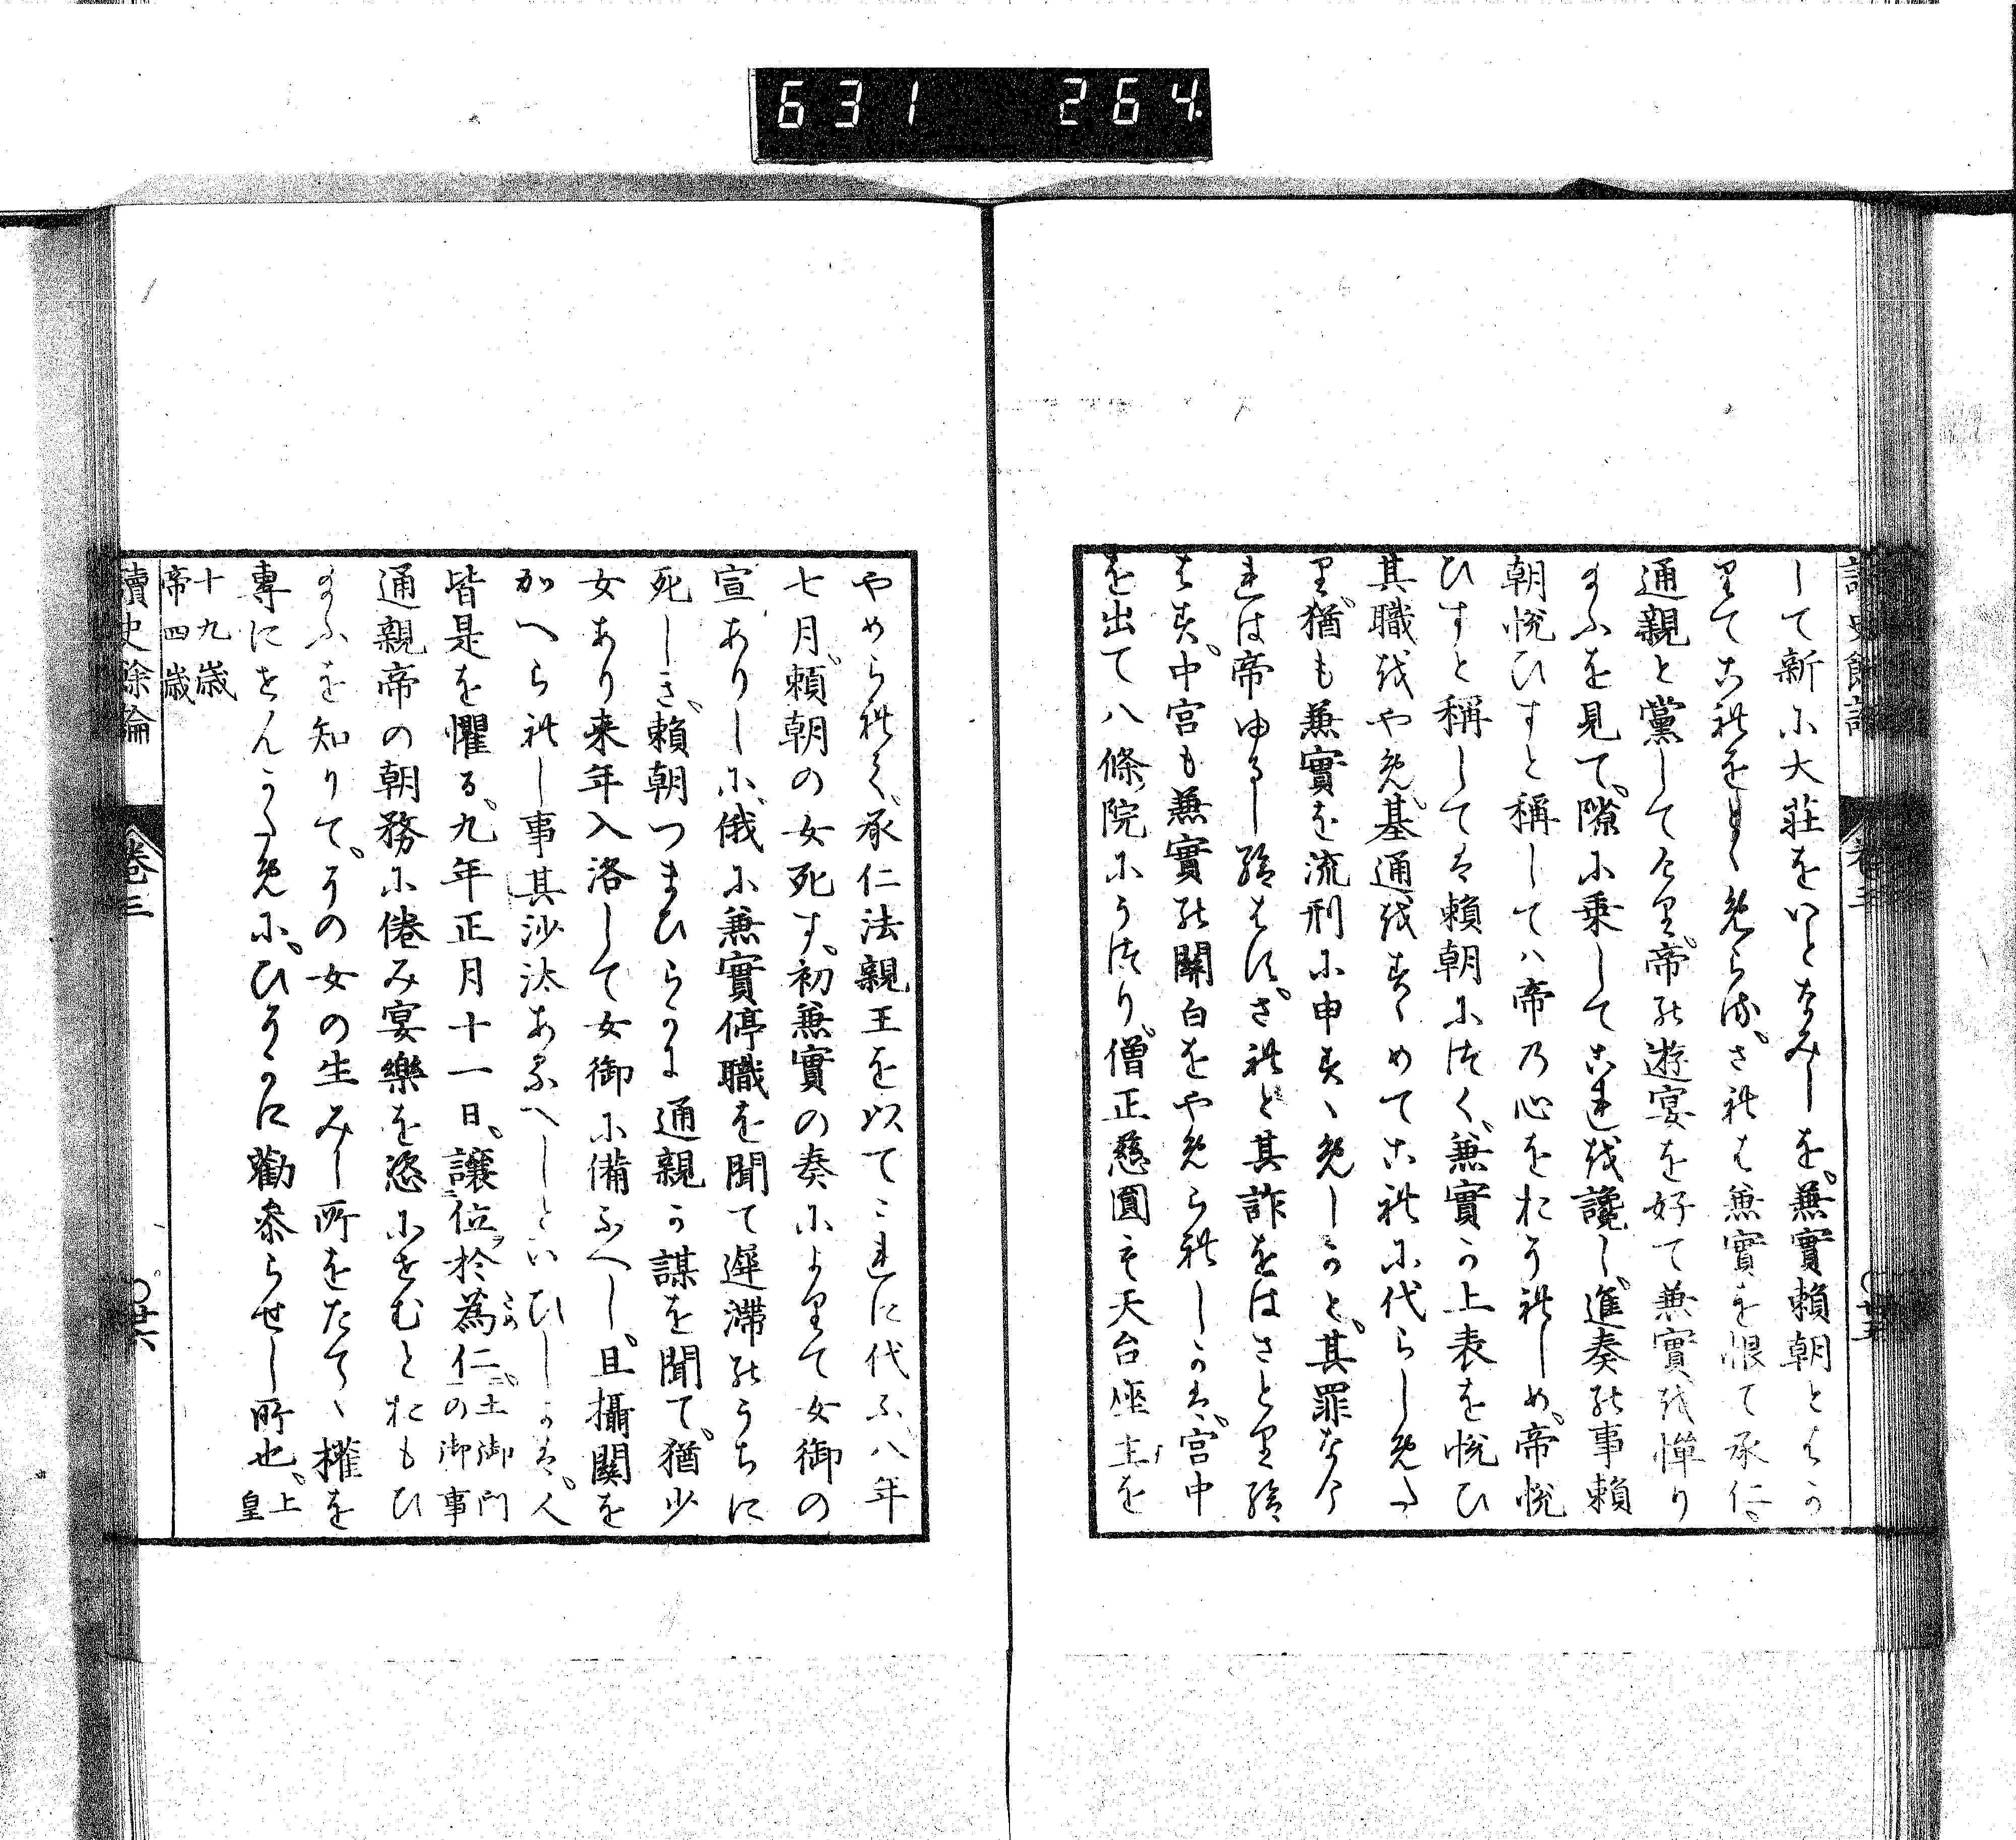 631 264
讀史餘論 卷三 〇廿五
して新に大莊をいとなみしを、兼實頼朝とはか
りてこれをとゝめらる、されは兼實を恨て承仁、
通親と黨してけり、帝の遊宴を好て兼實を憚り
給ふを見て、隙に乗してこれを讒し、進奏の事頼
朝悦ひすと稱しては帝乃心をおそれしめ、帝悦
ひすと稱しては頼朝につく、兼實か上表を悦ひ
其職をやめ、基通をすゝめてこれに代らしめた
り、猶も兼實を流刑に申すゝめしかと、其罪なけ
れは帝ゆるし給はす、されと其詐をはさとり給
はす、中宮も兼實の關白をやめられしかは、宮中
を出て八條院にうつり、僧正慈圓も天台座主を
やめられて、承仁法親王を以てこれに代ふ、八年
七月、頼朝の女死す、初兼實の奏によりて女御の
宣ありしに、俄に兼實停職を聞て遲滯のうちに
死しき、頼朝つまひらかに通親か謀を聞て、猶少
女あり来年入洛して女御に備ふへし、且攝關を
かへられし事其沙汰あるへしといひしかは、人
皆是を懼る、九年正月十一日、讓位ヲ於為仁、土御門の御事
通親帝の朝務に倦み宴樂を恣にせむとおもひ
給ふを知りて、その女の生みし所をたてゝ權を
專にせんかために、ひそかに勸参らせし所也、上皇
十九歳
帝四歳
讀史餘論 卷三 〇廿六